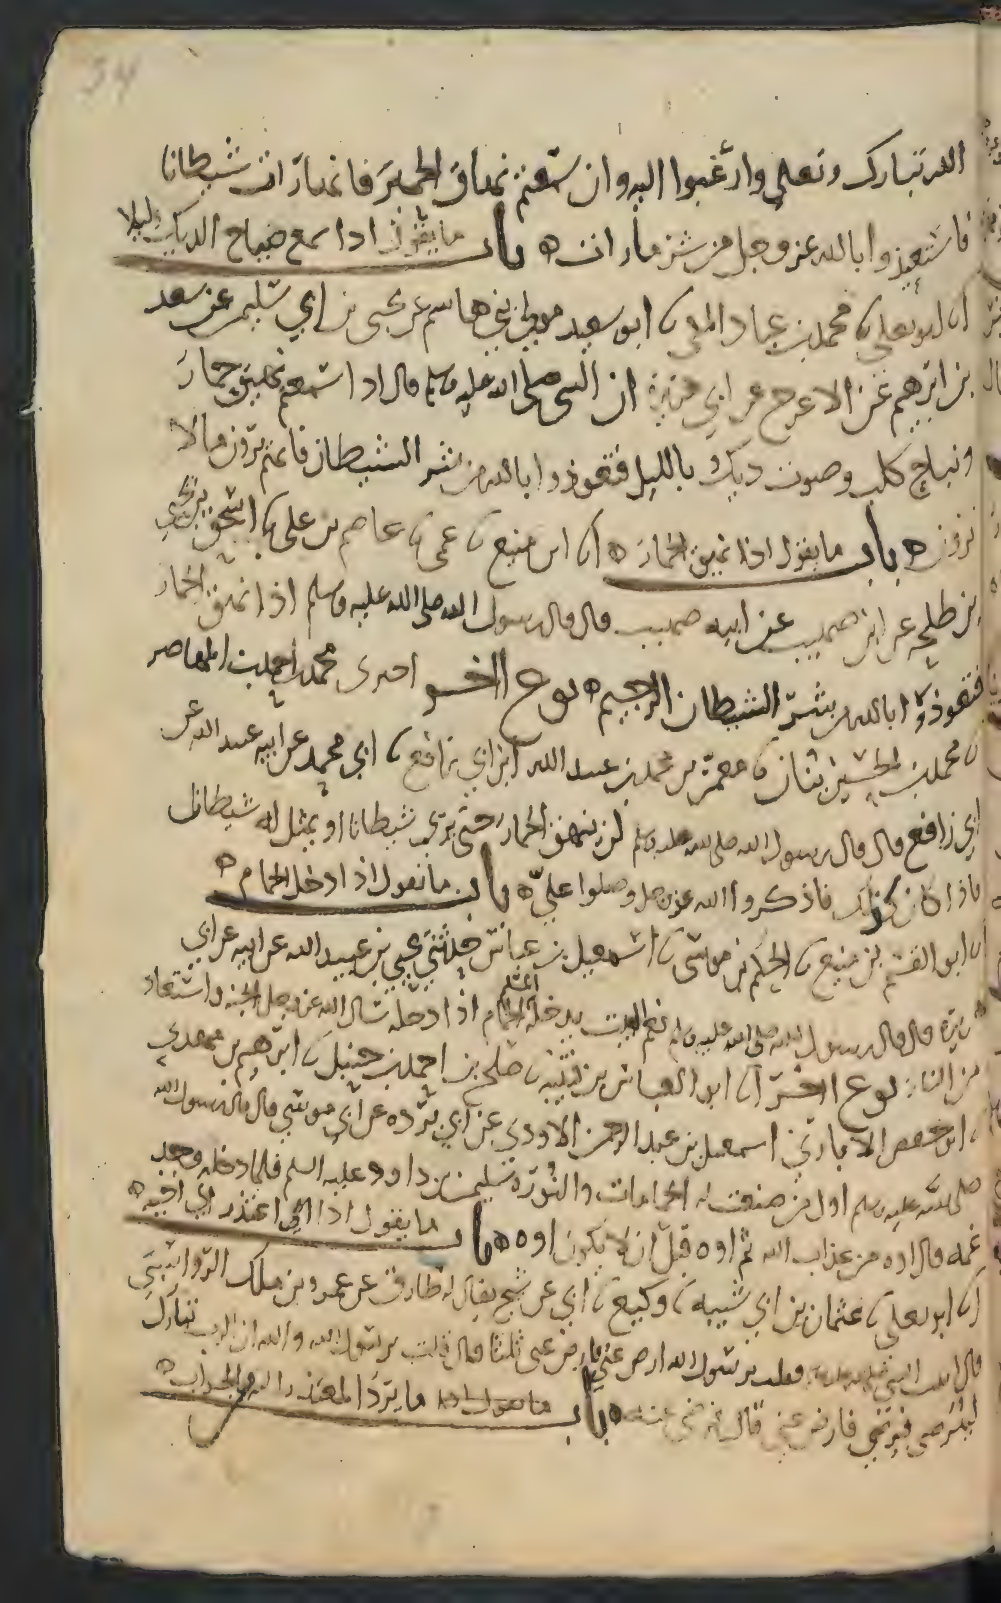 34
الله تبارك وتعلى وارغبوا اليه وان سمعتم نهاق الحمير فانها رات شيطانا
فاستعيذوا بالله عز وجل من شر ما رات ه باب ما يقول اذا سمع صياح الديك ليلا
ابو يعلى محمد بن عباد المكي ابو سعيد مولى بني هاشم عن يحيى بن ابي سليم عن سعد
بن ابرهيم عن الاعرج عن ابي هريرة ان النبي صلى الله عليه وسلم قال اذا سمعتم نهيق حمار
ونباح كلب وصوت ديك بالليل فتعوذوا بالله من شر الشيطان فانهم يرون ما لا
ترون ه باب ما يقول اذا نهيق الحمار ه ابن منيع عمي عاصم بن علي اسحق بن يحيى
بن طلحه عن ابن صهيب عن ابيه صهيب قال قال رسول الله صلى الله عليه وسلم اذا نهق الحمار
فتعوذوا بالله من شر الشيطان الرجيم ه نوع اخر اخبرني محمد بن احمد بن المهاصر
محمد بن الحسين معمر بن محمد بن عبيد الله ابن ابي رافع ابي محمد عن ابيه عبيد الله عن
ابي رافع قال قال رسول الله صلى الله عليه وسلم لن ينهق الحمار حتى يرى شيطانا او يمثل له شيطان
فاذا كان كذلك فاذكروا الله عز وجل وصلوا علي ه باب ما يقول اذا دخل الحمام ه
ابو القسم بن منيع الحكم بن موسى اسمعيل بن عياش حدثني يحيى بن عبيد الله عن ابيه عن ابي
هريرة قال قال رسول الله صلى الله عليه وسلم نعم البيت يدخله المسلم الحمام اذا دخله سال الله عز وجل الجنه واستعاذ
من النار نوع اخر ابو العباس بن قتيبه صلح بن احمد بن حنبل ابرهيم بن مهدي
ابو حفص الابار اسمعيل بن عبد الرحمن الاودي عن ابي برده عن ابي موسى قال قال رسول الله
صلى الله عليه وسلم اول من صنعت له الحمامات والنورة سليمن بن داود عليه السلم فلما دخله وجد
غمه قال اوه من عذاب الله ثم اوه قبل ان لا يكون اوه ه باب ما يقول اذا اعتذر الى اخيه ه
ابو يعلى عثمان بن ابي شيبه وكيع ابي عن شيخ يقال له طارق عن عمرو بن ملك الرواسي
قال اتيت النبي صلى الله عليه وسلم فقلت يرسول الله ارض عني فاعرض عني ثلثا قال قلت يرسول الله والله ان الرب تبارك
ليترضى فيرضى فارض عني قال فرضي عنه ه باب ما يقول اذا ما يرد المعتذر اليه من الجواب ه